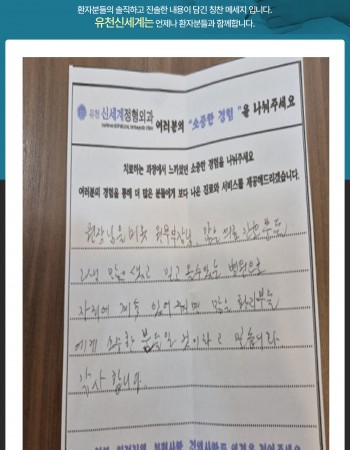 환자분들의 솔직하고 진솔한 내용이 담긴 칭찬 메세지 입니다.
유천신세계는 언제나 환자분들과 함께합니다.
유천 신세계정형외과 여러분의 "소중한 경험"을 나눠주세요
치료하는 과정에서 느끼셨던 소중한 경험을 나눠주세요
여러분의 경험을 통해 더 많은 분들에게 보다 나은 진료와 서비스를 제공해드리겠습니다.
원장님을 비롯 많은 의료 진분들
고생 많이 하고 믿고 올수있는 병원으로
자리에 계속 있어주면 많은 환자분들
에게 소중한 분들일 것이라고 믿습니다.
감사 합니다